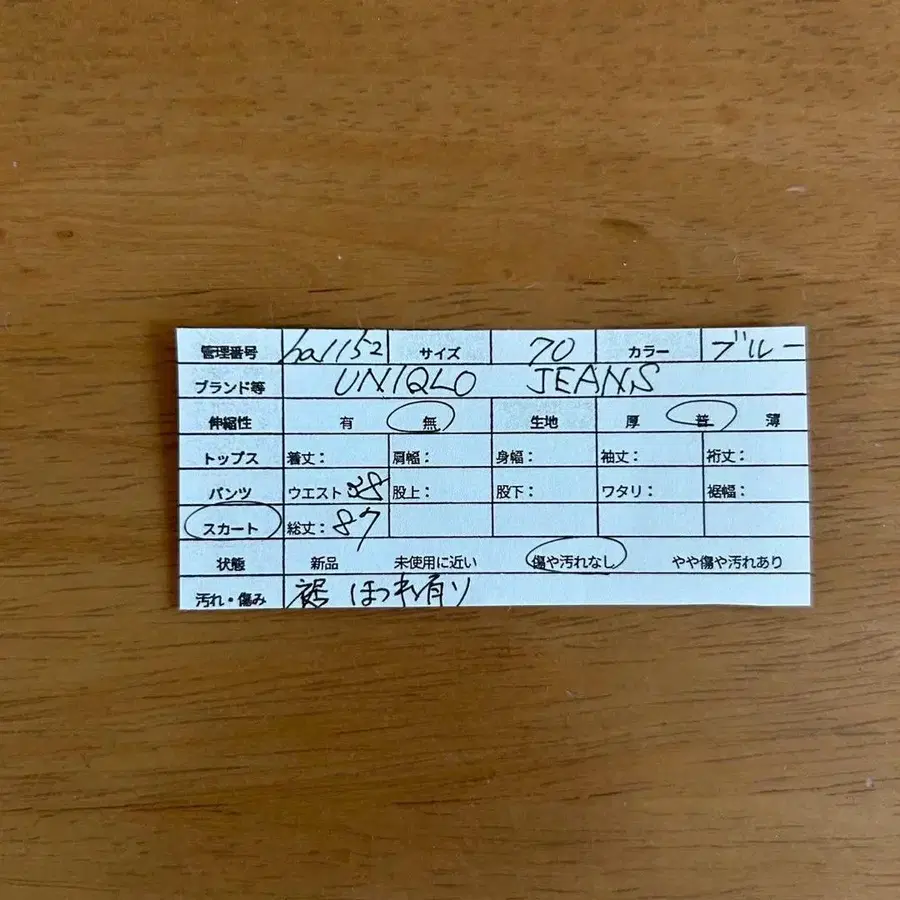 管理番号 ha1152 サイズ 70 カラー ブルー
ブランド等 UNIQLO JEANS
伸縮性 有 無 生地 厚 普 薄
トップス 着丈: 肩幅: 身幅: 袖丈: 裄丈:
パンツ ウエスト 38 股上: 股下: ワタリ: 裾幅:
スカート 総丈: 87
状態 新品 未使用に近い 傷や汚れなし やや傷や汚れあり
汚れ・傷み 裾 ほつれ有り